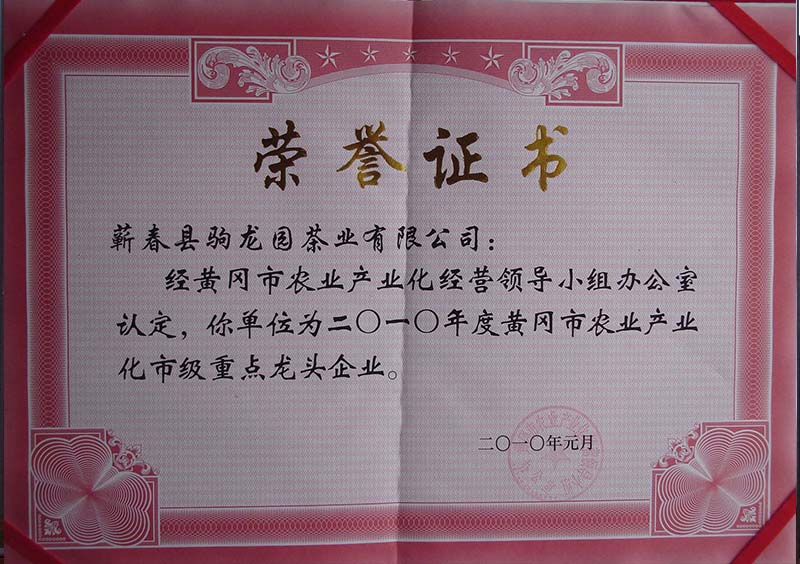 荣誉证书
蕲春县驹龙园茶业有限公司：
经黄冈市农业产业化经营领导小组办公室
认定，你单位为二〇一〇年度黄冈市农业产业
化市级重点龙头企业。
二〇一〇年元月